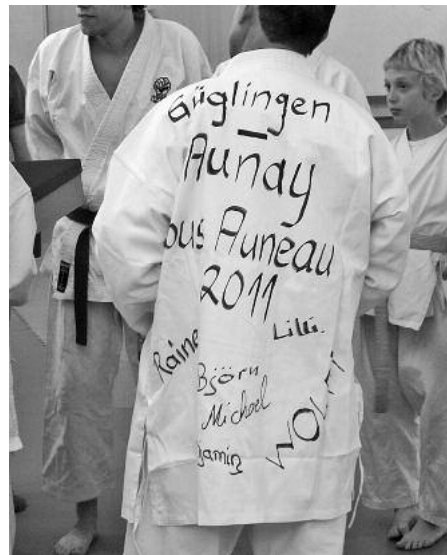 Güglingen
–
Aunay
ous Auneau
2011
Lilli.
Raine
Björn
Michael
jamin